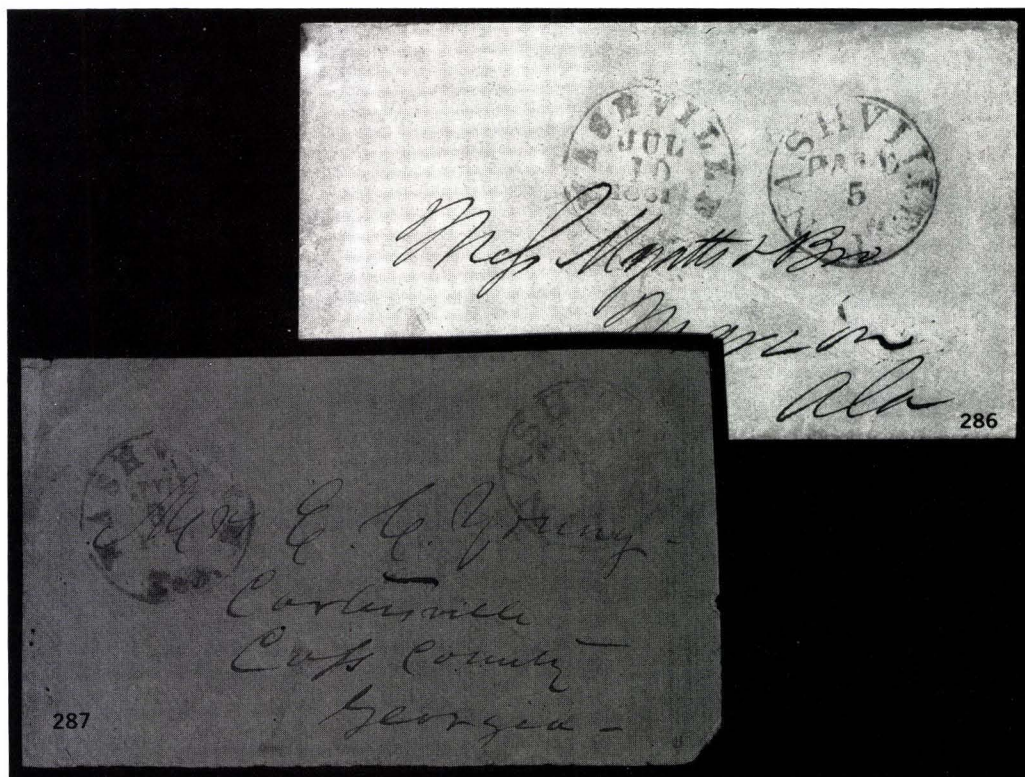 NASHVILLE
JUL
10
1861
NASHVILLE
PAID
5
Mess Myatts & Bro
Marion
Ala
286
NASH
E. C. Young -
Cartersville
Cass County
Georgia -
287